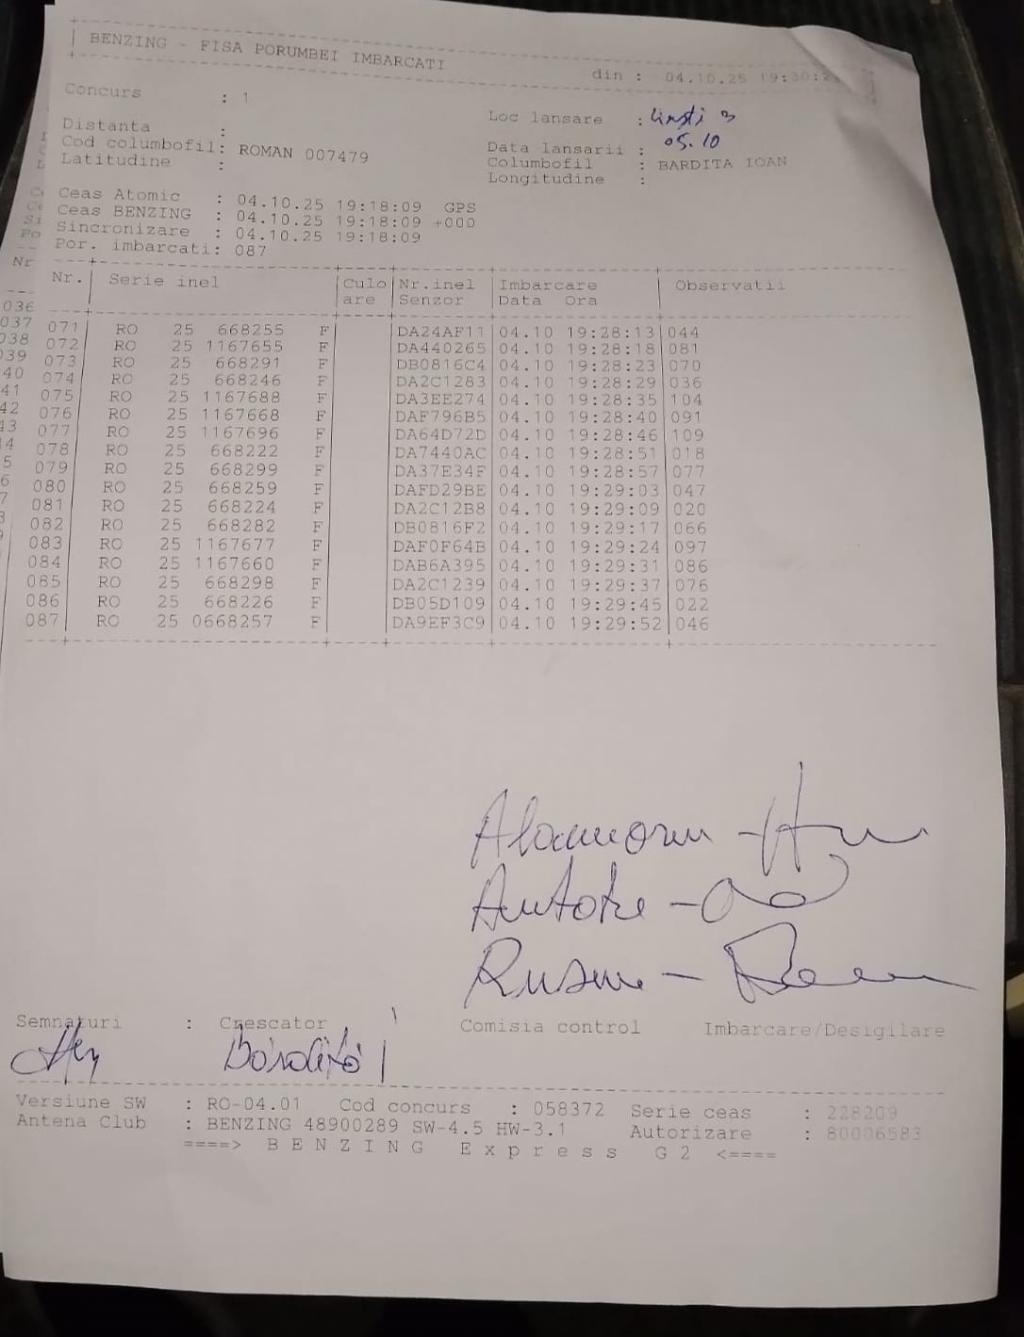 BENZING - FISA PORUMBEI IMBARCATI
din : 04.10.25 19:30:2
Concurs : 1
Loc lansare :
Distanta :
05.10
Cod columbofil: ROMAN 007479
Data lansarii :
Latitudine :
Columbofil : BARDITA IOAN
Longitudine :
Ceas Atomic : 04.10.25 19:18:09 GPS
Ceas BENZING : 04.10.25 19:18:09 +000
Sincronizare : 04.10.25 19:18:09
Por. imbarcati: 087
Nr. Serie inel Culo Nr.inel Imbarcare Observatii
are Senzor Data Ora
071 RO 25 668255 F DA24AF11 04.10 19:28:13 044
072 RO 25 1167655 F DA440265 04.10 19:28:18 081
073 RO 25 668291 F DB0816C4 04.10 19:28:23 070
074 RO 25 668246 F DA2C1283 04.10 19:28:29 036
075 RO 25 1167688 F DA3EE274 04.10 19:28:35 104
076 RO 25 1167668 F DAF796B5 04.10 19:28:40 091
077 RO 25 1167696 F DA64D72D 04.10 19:28:46 109
078 RO 25 668222 F DA7440AC 04.10 19:28:51 018
079 RO 25 668299 F DA37E34F 04.10 19:28:57 077
080 RO 25 668259 F DAFD29BE 04.10 19:29:03 047
081 RO 25 668224 F DA2C12B8 04.10 19:29:09 020
082 RO 25 668282 F DB0816F2 04.10 19:29:17 066
083 RO 25 1167677 F DAF0F64B 04.10 19:29:24 097
084 RO 25 1167660 F DAB6A395 04.10 19:29:31 086
085 RO 25 668298 F DA2C1239 04.10 19:29:37 076
086 RO 25 668226 F DB05D109 04.10 19:29:45 022
087 RO 25 0668257 F DA9EF3C9 04.10 19:29:52 046
Semnaturi : Crescator Comisia control Imbarcare/Desigilare
Versiune SW : RO-04.01 Cod concurs : 058372 Serie ceas : 228209
Antena Club : BENZING 48900289 SW-4.5 HW-3.1 Autorizare : 80006583
====> B E N Z I N G E x p r e s s G 2 <====